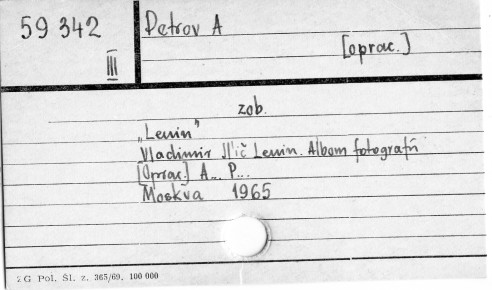 59 342
III
Petrov A
[oprac.]
zob.
„Lenin"
Vladimir Il'ič Lenin. Album fotografii
[Oprac.] A... P...
Moskva 1965
ZG Pol. Śl. z. 365/69. 100 000